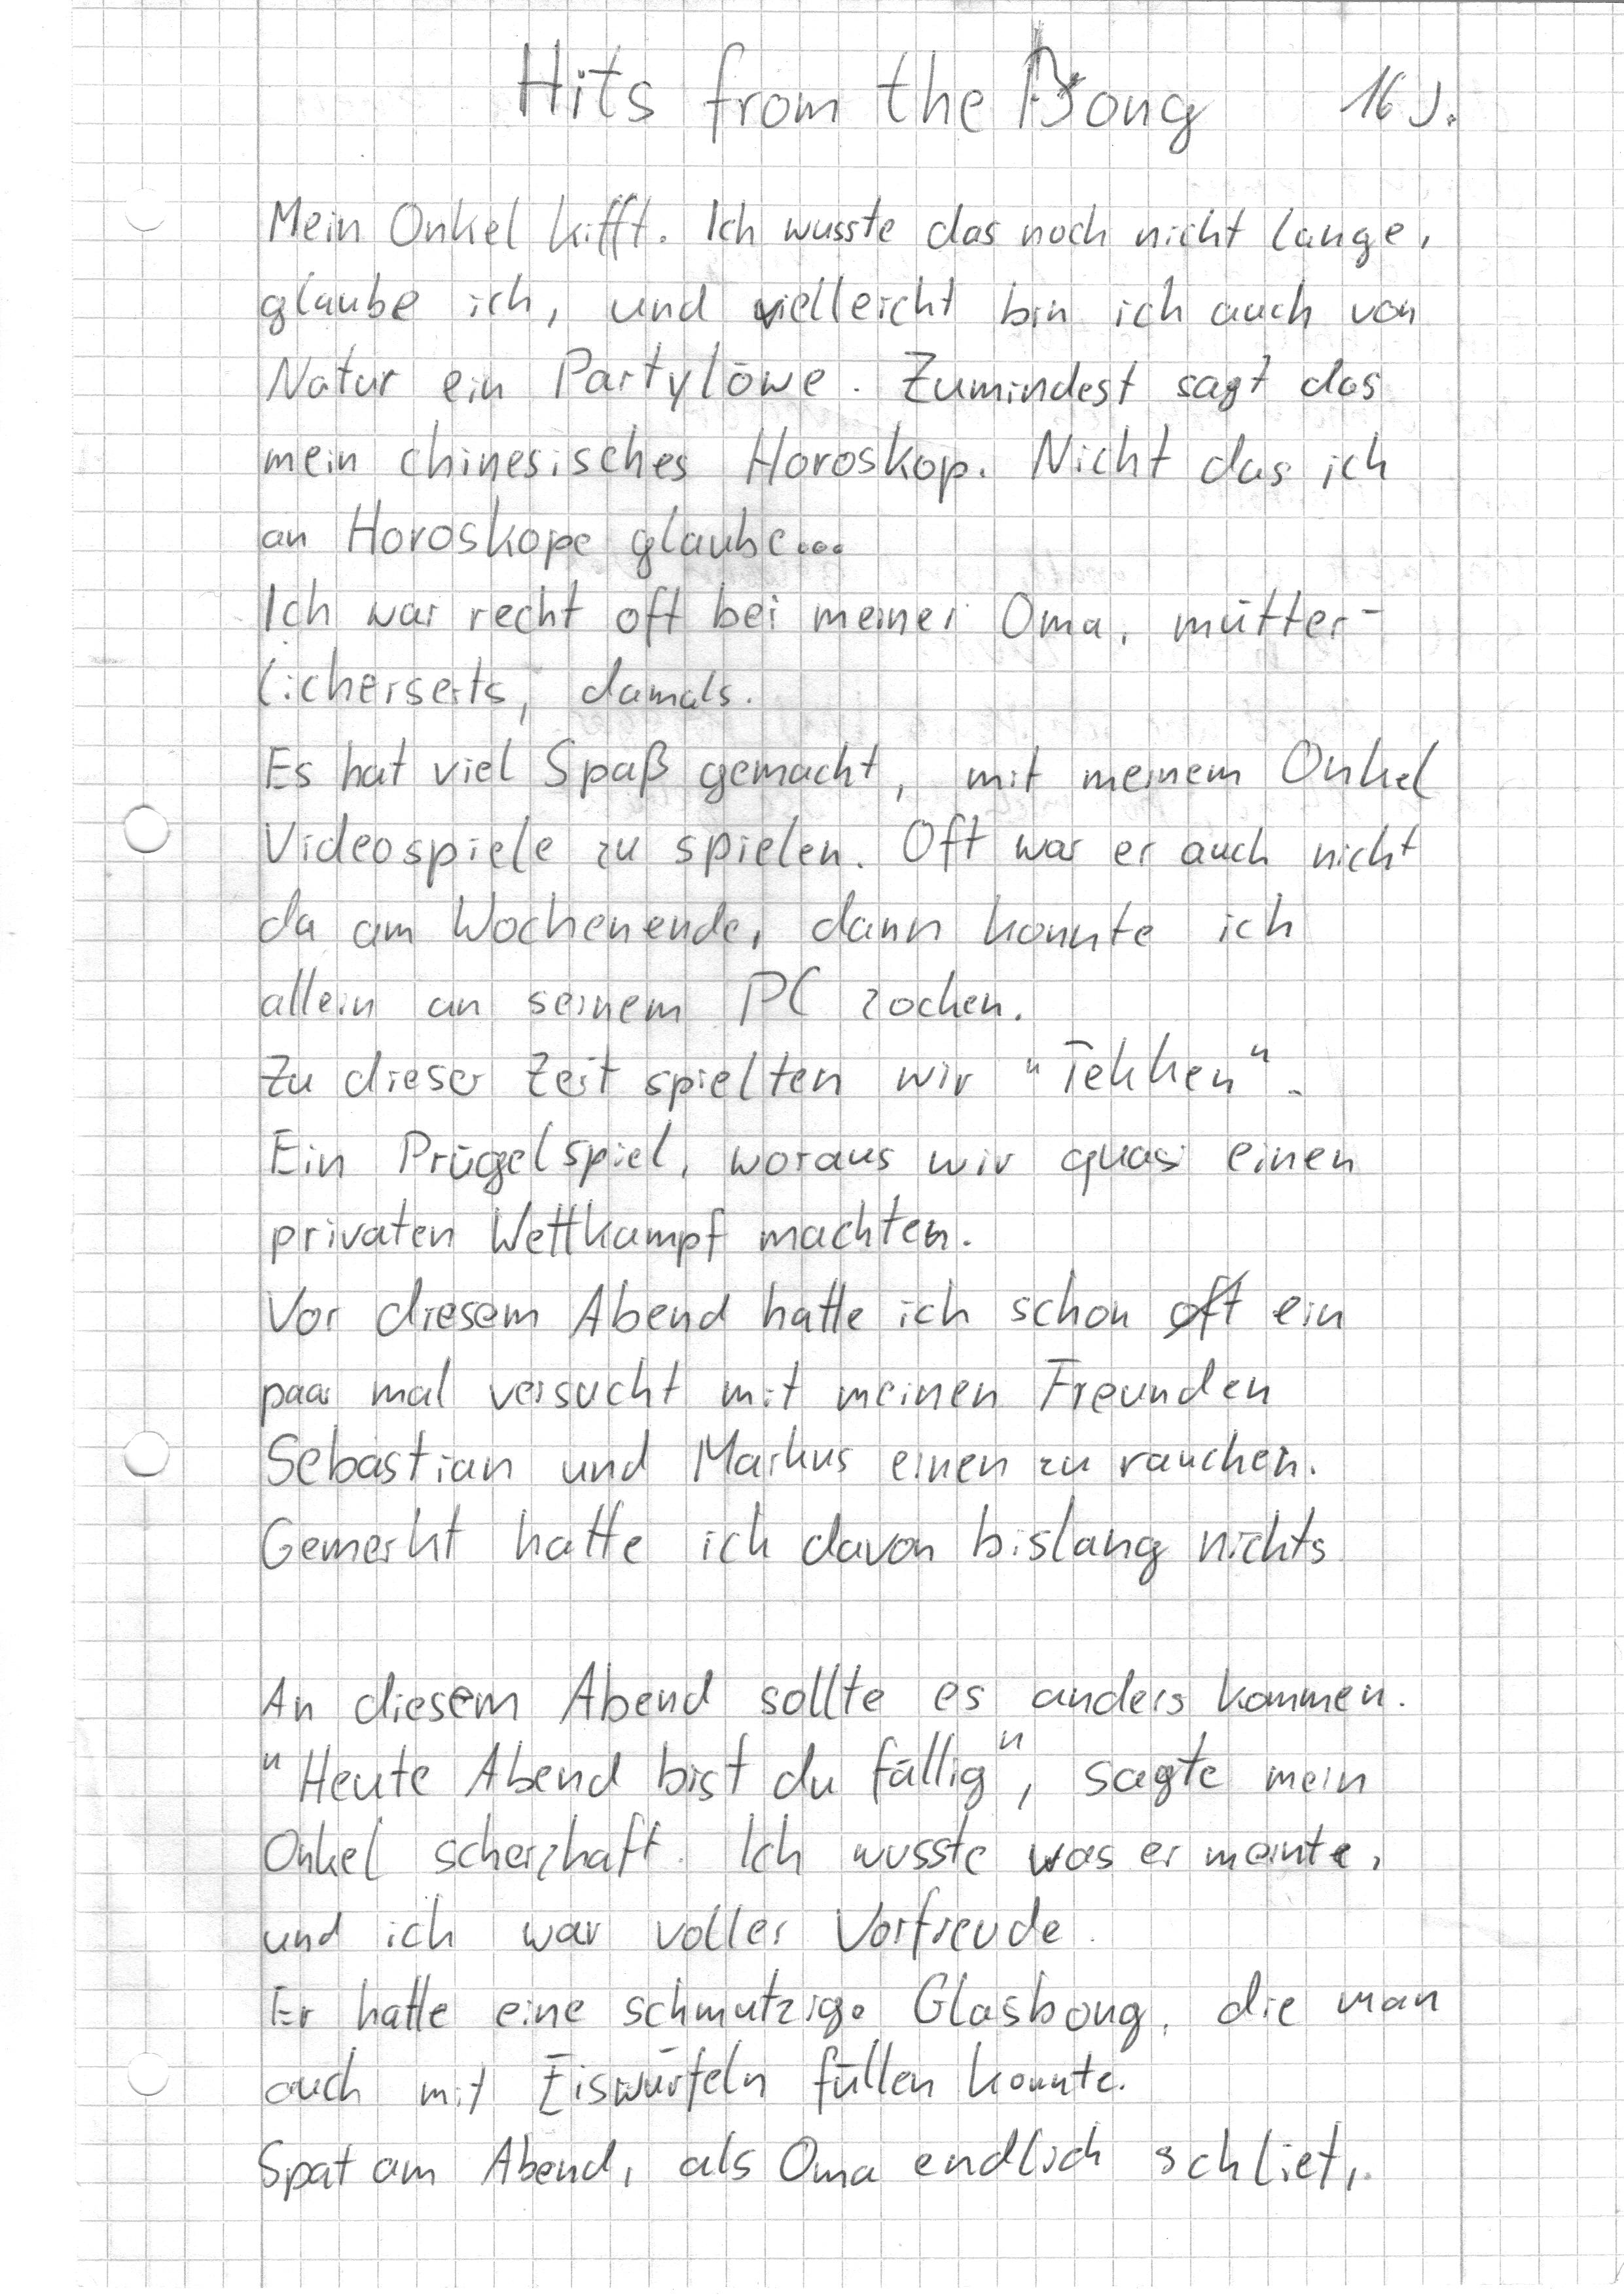 Hits from the Bong 16 J.
Mein Onkel kifft. Ich wusste das noch nicht lange,
glaube ich, und vielleicht bin ich auch von
Natur ein Partylöwe. Zumindest sagt das
mein chinesisches Horoskop. Nicht das ich
an Horoskope glaube...
Ich war recht oft bei meiner Oma, mütter-
licherseits, damals.
Es hat viel Spaß gemacht, mit meinem Onkel
Videospiele zu spielen. Oft war er auch nicht
da am Wochenende, dann konnte ich
allein an seinem PC zocken.
Zu dieser Zeit spielten wir "Tekken".
Ein Prügelspiel, woraus wir quasi einen
privaten Wettkampf machten.
Vor diesem Abend hatte ich schon oft ein
paar mal versucht mit meinen Freunden
Sebastian und Markus einen zu rauchen.
Gemerkt hatte ich davon bislang nichts
An diesem Abend sollte es anders kommen.
"Heute Abend bist du fällig", sagte mein
Onkel scherzhaft. Ich wusste was er meinte,
und ich war voller Vorfreude.
Er hatte eine schmutzige Glasbong, die man
auch mit Eiswürfeln füllen konnte.
Spät am Abend, als Oma endlich schlief,